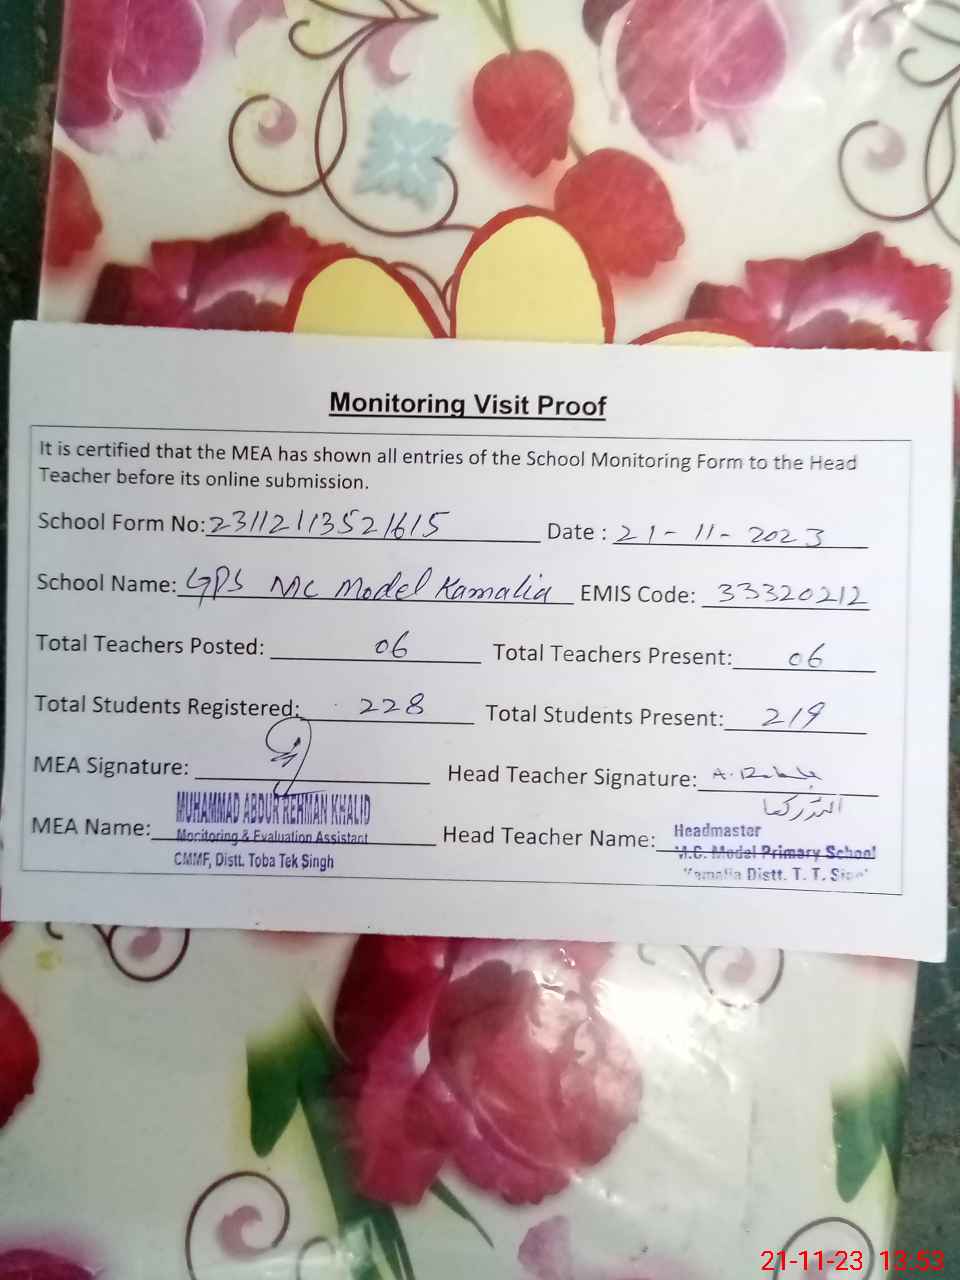 Monitoring Visit Proof
It is certified that the MEA has shown all entries of the School Monitoring Form to the Head
Teacher before its online submission.
School Form No: 23112113521615 Date : 21-11-2023
School Name: GPS MC Model Kamalia EMIS Code: 33320212
Total Teachers Posted: 06 Total Teachers Present: 06
Total Students Registered: 228 Total Students Present: 219
MEA Signature: Head Teacher Signature:
MEA Name: MUHAMMAD ABDUR REHMAN KHALID Head Teacher Name:
Monitoring & Evaluation Assistant
CMMF, Distt. Toba Tek Singh
Headmaster
M.C. Model Primary School
Kamalia Distt. T. T.
21-11-23 13:53